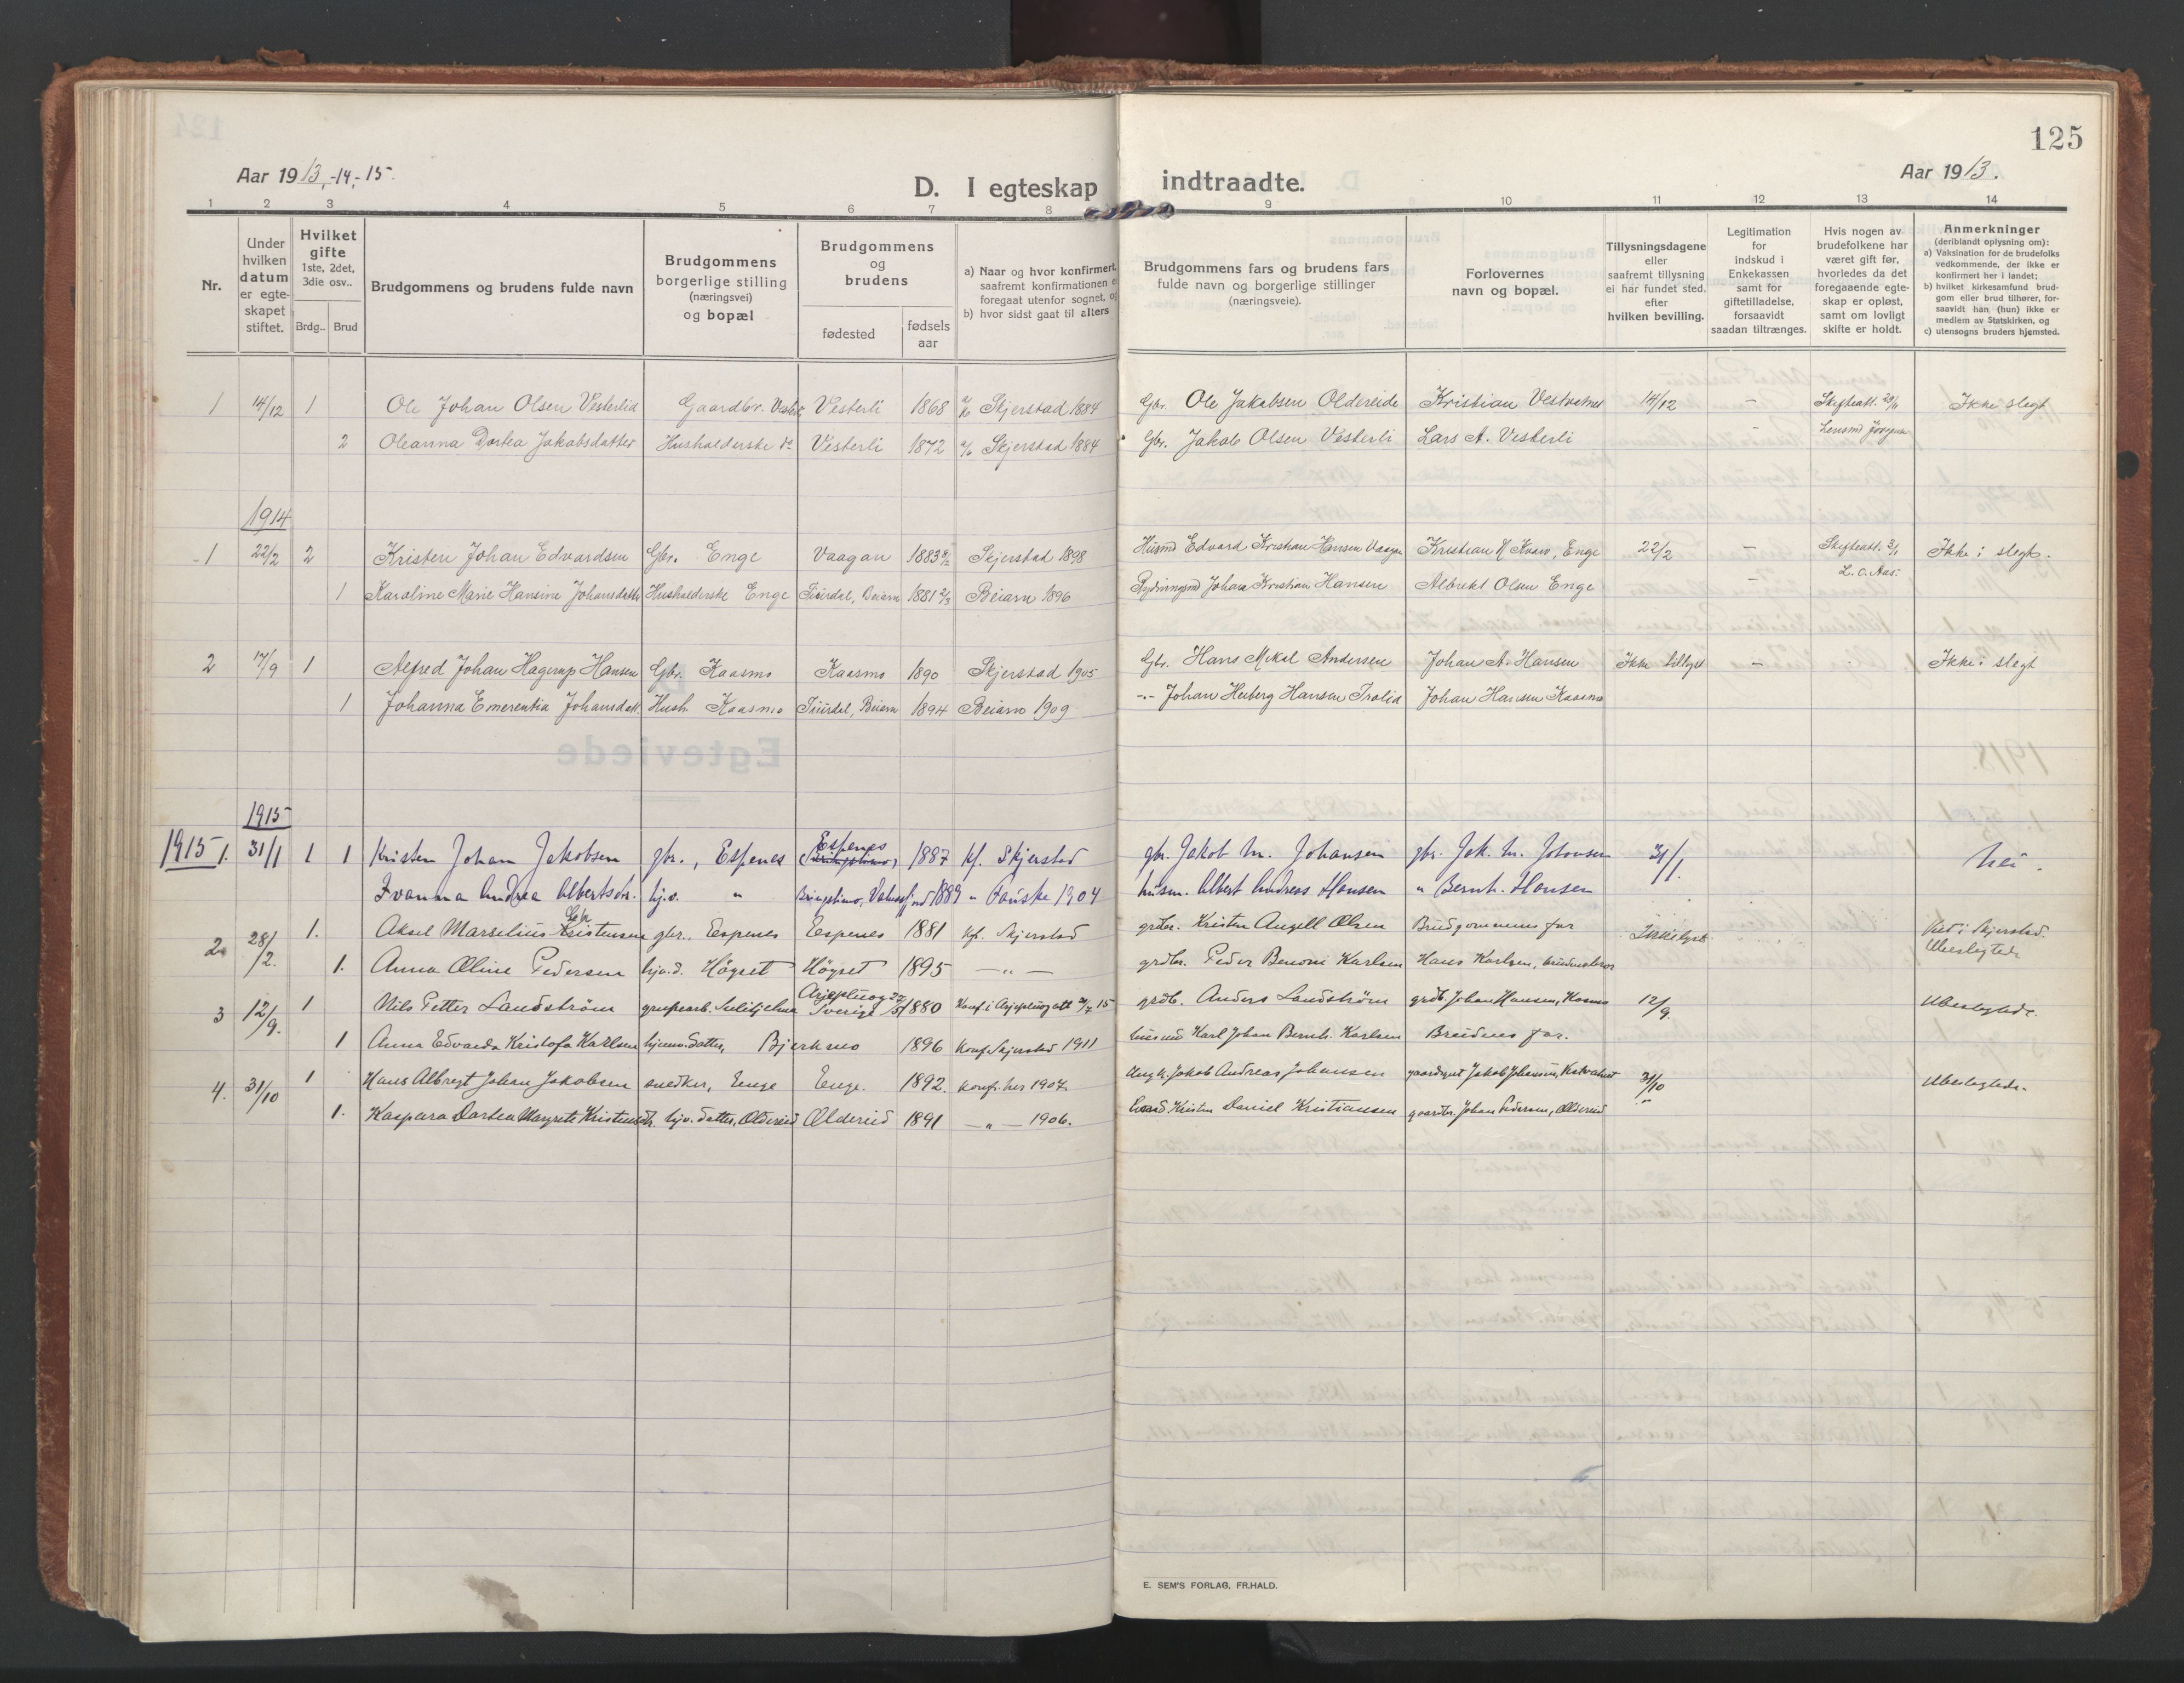 125
Aar 1913,-14,-15.
D. I egteskap indtraadte.
Aar 1913.
1 2 3 4 5 6 7 8 9 10 11 12 13 14
Nr.
Under hvilken datum er egte-skapet stiftet.
Hvilket gifte 1ste, 2det, 3die osv..
Brdg.. Brud
Brudgommens og brudens fulde navn
Brudgommens borgerlige stilling (næringsvei) og bopæl
Brudgommens og brudens
fødested fødsels aar
a) Naar og hvor konfirmert, saafremt konfirmationen foregaat utenfor sognet, og
b) hvor sidst gaat til alters
Brudgommens fars og brudens fars fulde navn og borgerlige stillinger (næringsveie).
Forlovernes navn og bopæl.
Tillysningsdagene eller saafremt tillysning ei har fundet sted, efter hvilken bevilling.
Legitimation for indskud i Enkekassen samt for giftetilladelse, forsaavidt saadan tiltrænges.
Hvis nogen av brudefolkene har været gift før, hvorledes da det foregaaende egte-skap er opløst, samt om lovligt skifte er holdt.
Anmerkninger
(deriblandt oplysning om):
a) Vaksination for de brudefolks vedkommende, der ikke er konfirmert her i landet;
b) hvilket kirkesamfund brud-gom eller brud tilhører, for-saavidt han (hun) ikke er medlem av Statskirken, og
c) utensogns bruders hjemsted.
1 14/12 1 Ole Johan Olsen Vesterlid Gaardbr. Vesterli Vesterli 1868 Skjerstad 1884 Gbr. Ole Jakobsen Oldereide Kristian Vestvatnet 14/12 — Skifteatt. Ikke slegt
2 Oleanna Dortea Jakobsdatter Husholderske do Vesterli 1872 Skjerstad 1884 Gbr. Jakob Olsen Vesterli Lars A. Vesterli - Lensmd
1914
1 22/2 2 Kristen Johan Edvardsen Gbr. Enge Vaagan 1883 Skjerstad 1898 Husmd Edvard Kristian Hansen Vaagan Kristian H Kvæv, Enge 22/2 — Skifteatt. 3/1 Ikke i slegt.
1 Karoline Marie Hansine Johansdatter Husholderske Enge Tiurdal, Beiarn 1881 2/3 Beiarn 1896 Rydningsmd Johan Kristian Hansen Albrekt Olsen Enge — L. O. Aas.
2 17/9 1 Alfred Johan Hagerup Hansen Gbr. Kaasmo Kaasmo 1890 Skjerstad 1905 Gbr. Hans Mikal Andersen Johan A. Hansen Ikke tillyst — Ikke i slegt
1 Johanna Emerentia Johansdatt Hush. Kaasmo Tiurdal, Beiarn 1894 Beiarn 1909 -"- Johan Heiberg Hansen Trolid Johan Hansen Kaasmo
1915
1915 1. 31/1 1 1 Kristen Johan Jakobsen gbr., Espenes Espenes 1887 kf. Skjerstad gbr. Jakob M. Johansen gbr. Jak. M. Johansen 31/1. Nei.
Ivanna Andrea Albertsdtr. hjv. " Bringslimo, Valnesfjord 1889 " Fauske 1904 husm. Albert Andreas Hansen " Bernh. Hansen
2. 28/2. 1. Aksel Marselius Kristensen gbr. Espenes Espenes 1881 kf. Skjerstad grdbr. Kristen Angell Olsen Brudgommens far Viet i Skjerstad.
1. Anna Oline Pedersen hjv.d. Høgset Høgset 1895 —"— grdbr. Peder Benoni Karlsen Hans Karlsen, brudens bror Ubeslegtede
3 12/9. 1 Nils Petter Landström grubearb. Sulitjelma Arjepluog Sverige 1880 Konf. i Arjepluog att. 15 grdb. Anders Landström grdb. Johan Hansen, Kosmo 12/9. Ubeslegtede.
1 Anna Edvarda Kristofa Karlsen hjemv. datter, Bjerkmo 1896 konf. Skjerstad 1911 husmd Karl Johan Bernh. Karlsen Brudens far.
4. 31/10 1 Hans Albregt Johan Jakobsen snedker, Enge Enge. 1892. konf. her 1907. Jakob Andreas Johansen gaardbr. Jakob Johansen, 31/10 Ubeslegtede.
1. Kaspara Dortea Margrete Kristensdtr. hjv. datter, Oldereid Oldereid 1891 —"— 1906. Kristen Daniel Kristiansen gaardbr. Johan Pedersen, Oldereid "
E. SEM'S FORLAG, FR.HALD.